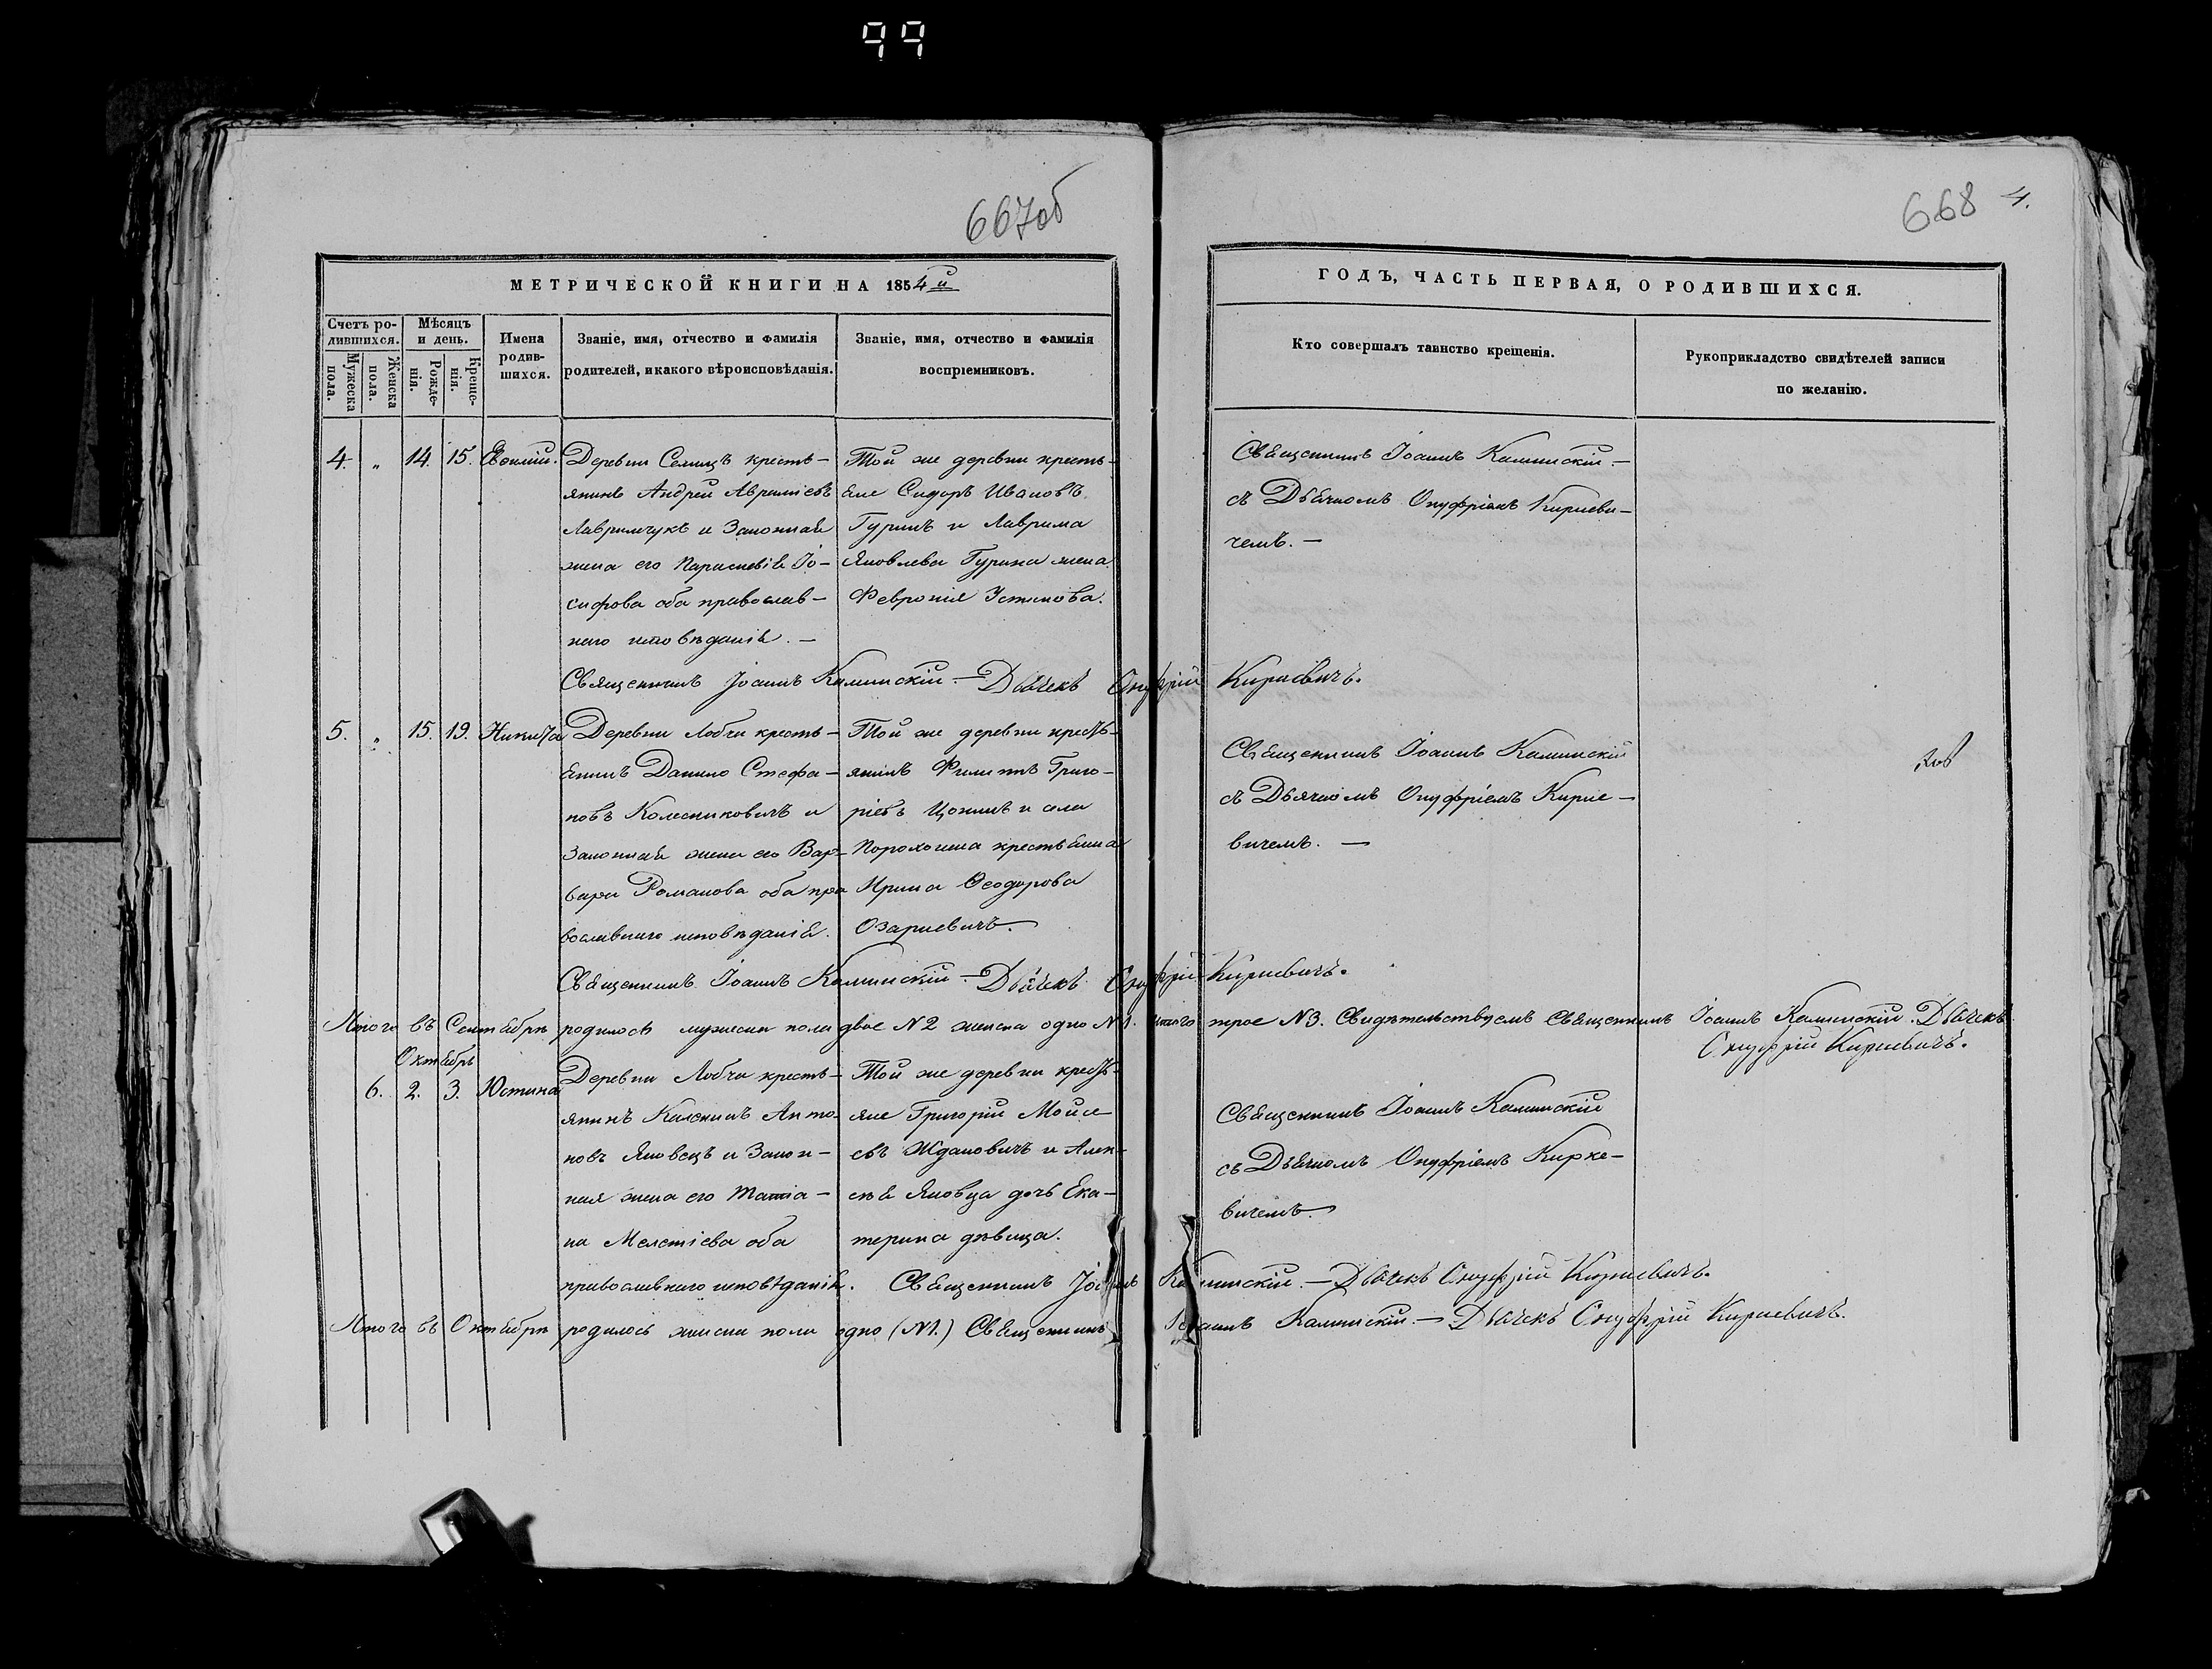 99
667об
668 4.
МЕТРИЧЕСКОЙ КНИГИ НА 1854й
ГОДЪ, ЧАСТЬ ПЕРВАЯ, О РОДИВШИХСЯ.
Счетъ ро-
дившихся.
Мужеска
пола.
Женска
пола.
Мѣсяцъ
и день.
Рожде-
нія.
Креще-
нія.
Имена
родив-
шихся.
Званіе, имя, отчество и фамилія
родителей, и какого вѣроисповѣданія.
Званіе, имя, отчество и фамилія
воспріемниковъ.
Кто совершалъ таинство крещенія.
Рукоприкладство свидѣтелей записи
по желанію.
4. „ 14. 15.
Деревни Семищъ кресть-
янинъ Андрей Авраміевъ
Лавримчукъ и Законная
жена его Параскевія Іо-
сифова оба православ-
наго исповѣданія. —
Той же деревни кресть-
яне Сидоръ Ивановъ
Гуринъ и Лаврима
Яковлева Гурина жена
Февронія Устинова.
Священникъ Іоаннъ Калинскій —
съ Дьячкомъ Онуфріемъ Киркеви-
чемъ. —
Священникъ Іоаннъ Калинскій — Дьячекъ Онуфрій Киркевичъ.
5. „ 15. 19. Никита
Деревни Лобчи кресть-
янинъ Данило Стефа-
новъ Колесниковичъ и
Законная жена его Вар-
вара Романова оба пра
вославнаго исповѣданія.
Той же деревни кресть-
янинъ Филиппъ Григо-
ріевъ Цокинъ и села
Порохонска крестьянка
Ирина Ѳеодорова
Озаркевичъ. —
Священникъ Іоаннъ Калинскій
съ Дьячкомъ Онуфріемъ Кирке-
вичемъ. —
Священникъ Іоаннъ Калинскій — Дьячекъ Онуфрій Киркевичъ.
Итого въ Сентябрѣ родилось мужеска пола двое N2 женска одно N1. итого трое N3. Свидѣтельствуемъ Священникъ Іоаннъ Калинскій. Дьячекъ
Онуфрій Киркевичъ.
Октябрь
6. 2. 3. Юстина
Деревни Лобчи кресть-
янинъ Каленикъ Анто-
новъ Яковецъ и Закон-
ная жена его Татіа-
на Мелетіева оба
православнаго исповѣданія.
Той же деревни кресть-
яне Григорій Моисе
евъ Ждановичъ и Алек-
сѣя Яковца дочь Ека-
терина дѣвица.
Священникъ Іоаннъ Калинскій
съ Дьячкомъ Онуфріемъ Кирке-
вичемъ. —
Священникъ Іоаннъ Калинскій. — Дьячекъ Онуфрій Киркевичъ.
Итого въ Октябрѣ родилось женска пола одно (N1.) Священникъ Іоаннъ Калинскій — Дьячекъ Онуфрій Киркевичъ.